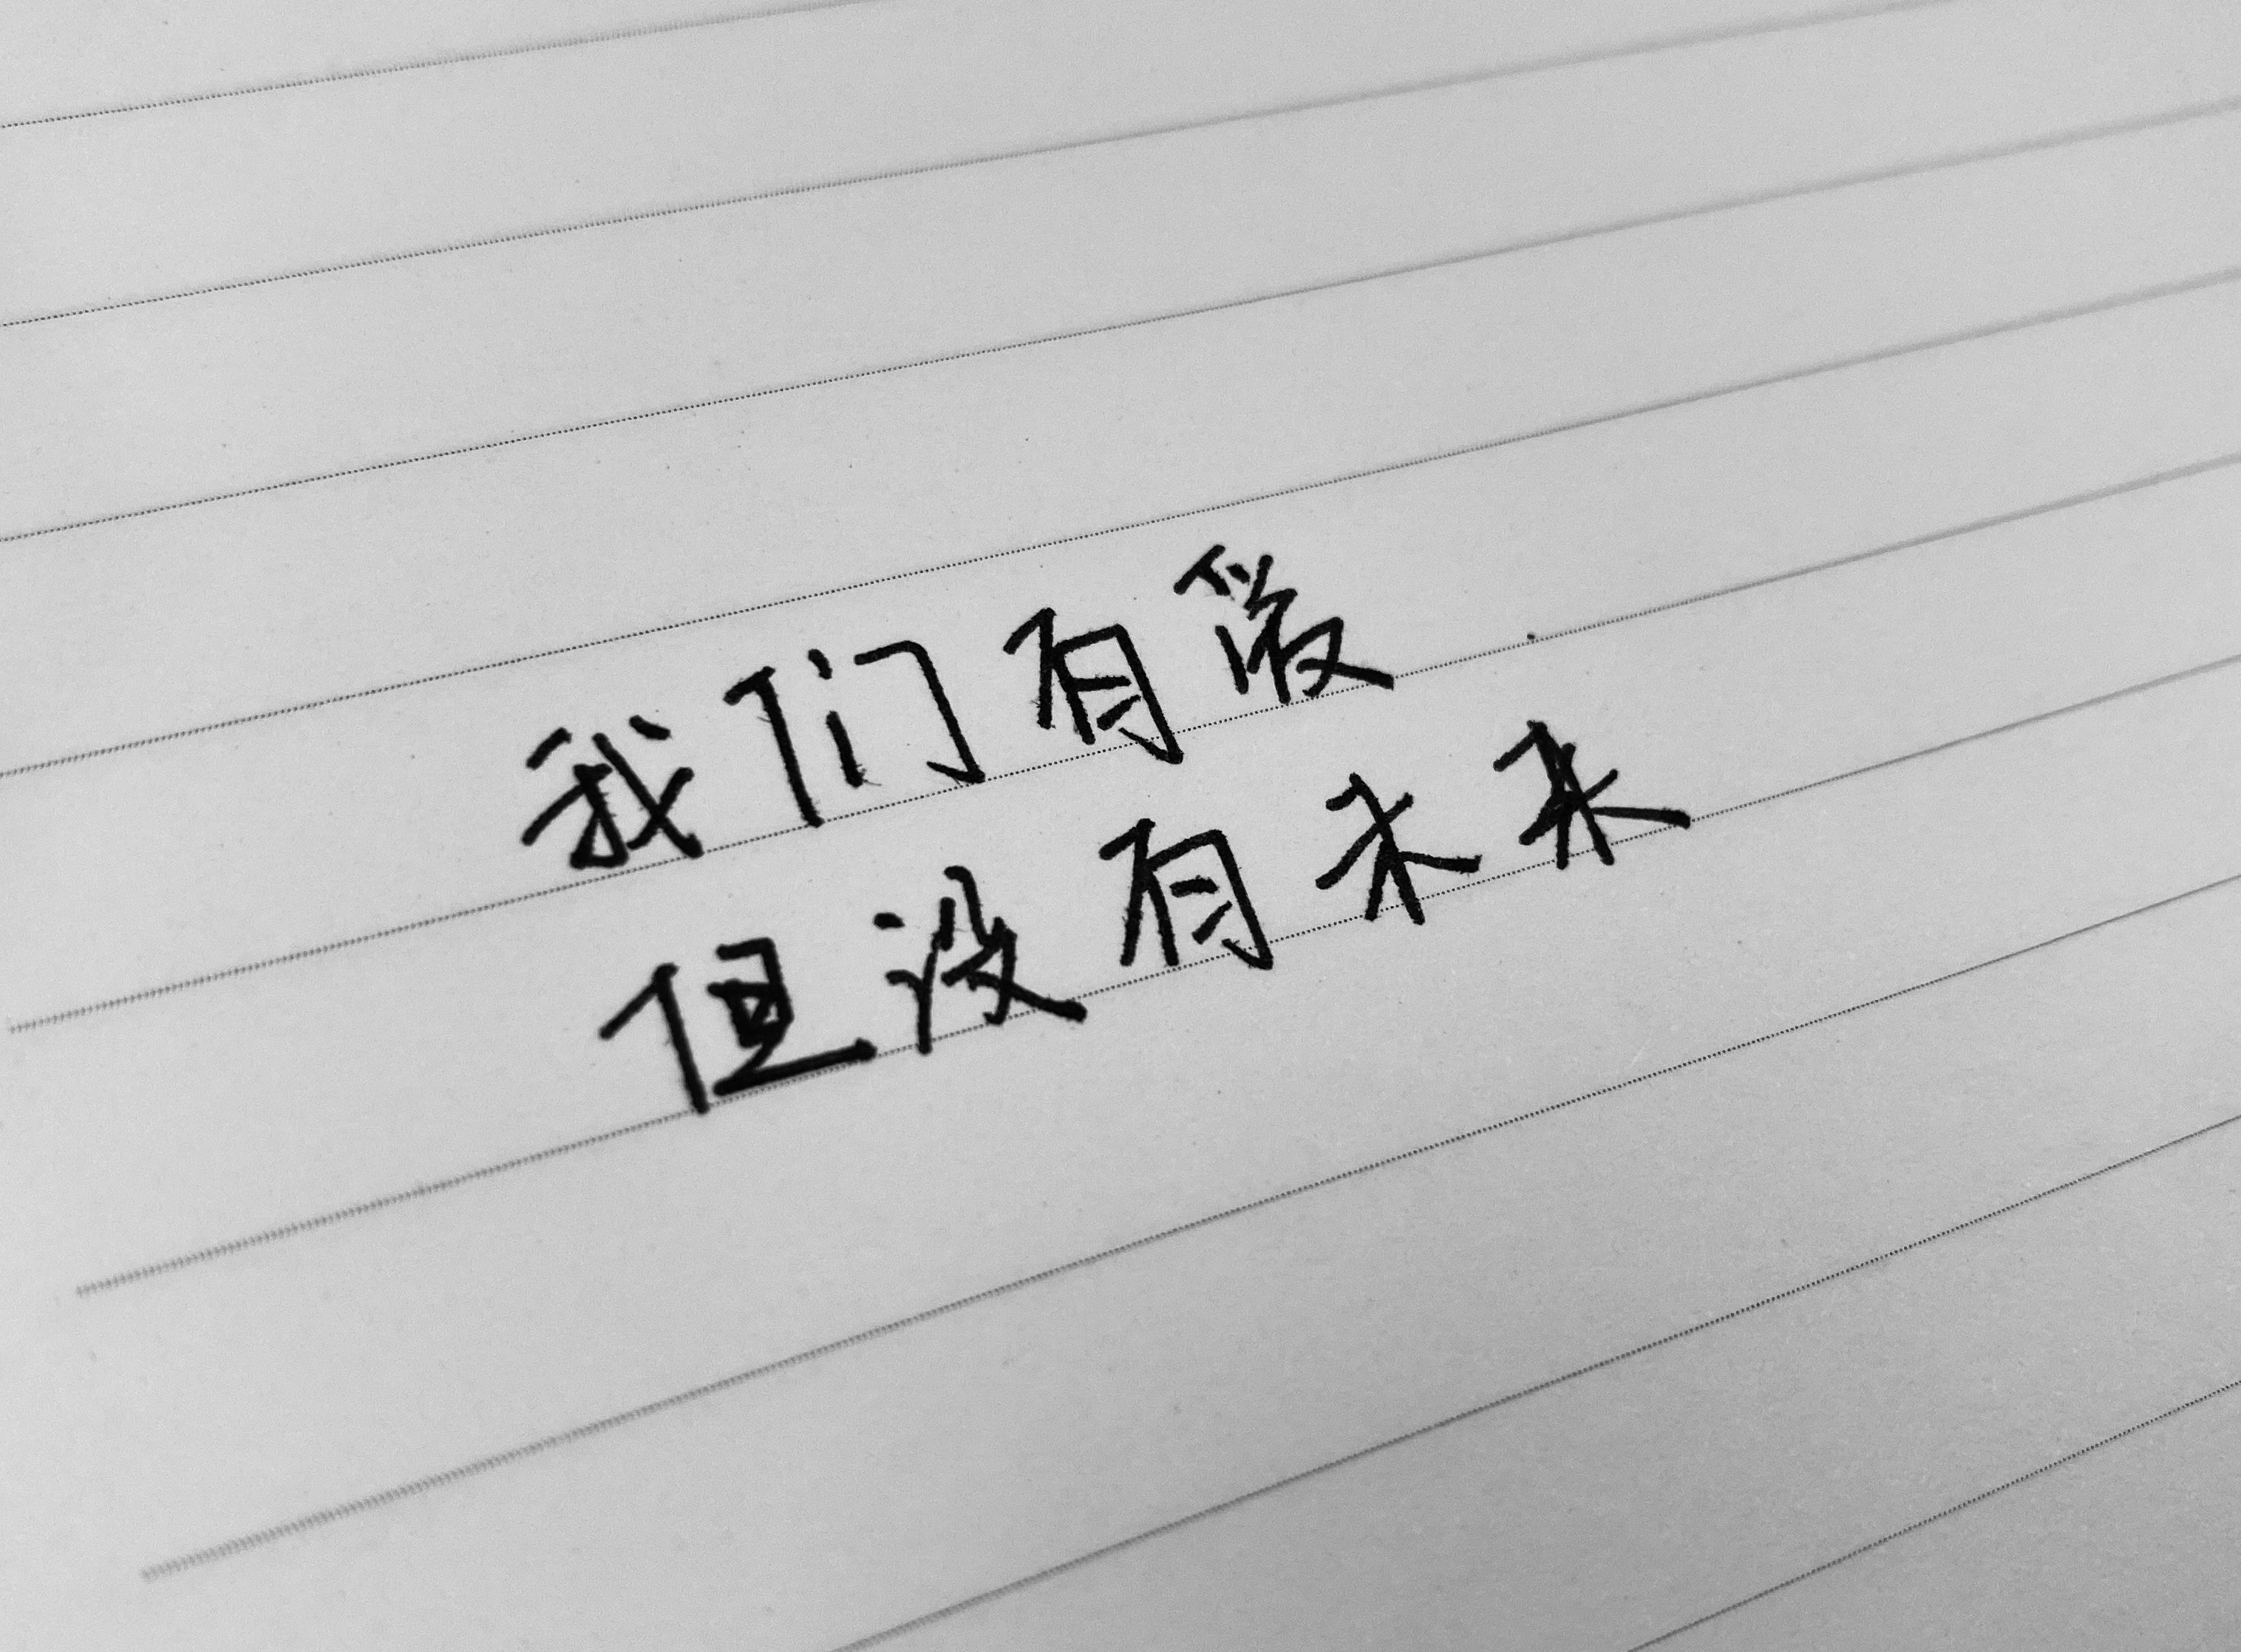 我们有爱
但没有未来